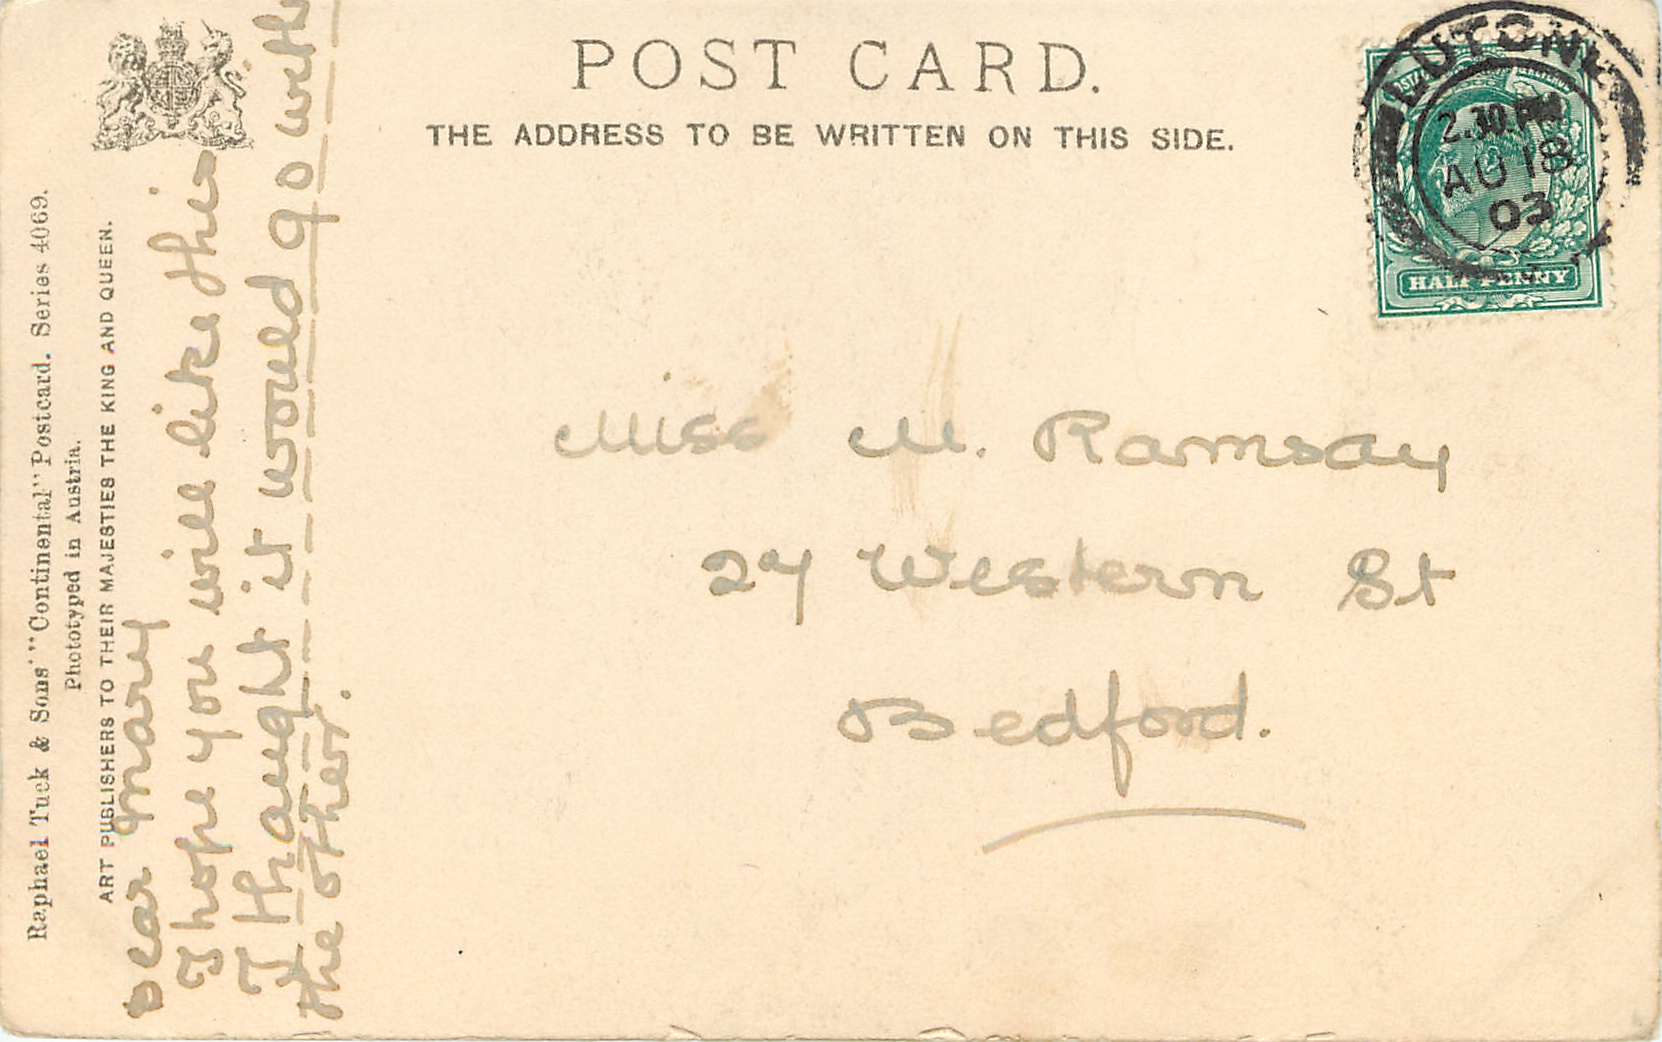 POST CARD.
THE ADDRESS TO BE WRITTEN ON THIS SIDE.
Raphael Tuck & Sons' "Continental" Postcard. Series 4069.
Phototyped in Austria.
ART PUBLISHERS TO THEIR MAJESTIES THE KING AND QUEEN.
Dear Mary
I hope you will like this
I thaught it would go with
the other.
LUTON
2.30.PM
AU 18
03
HALF PENNY
Miss M. Ramsay
27 Western St
Bedford.